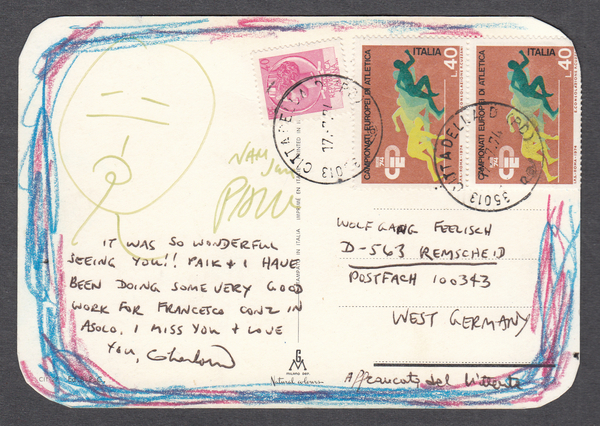 ITALIA
L.40
CAMPIONATI EUROPEI DI ATLETICA
ITALIA
L.40
CAMPIONATI EUROPEI DI ATLETICA
CITTADELLA
35013
CITTADELLA
35013
NAM JUNE
PAIK
IT WAS SO WONDERFUL
SEEING YOU!! PAIK & I HAVE
BEEN DOING SOME VERY GOOD
WORK FOR FRANCESCO CONZ IN
ASOLO. I MISS YOU & LOVE
YOU, Charlotte
WOLFGANG FEELISCH
D-563 REMSCHEID
POSTFACH 100343
WEST GERMANY
Affrancato dal Mittente
GM
Natural colour